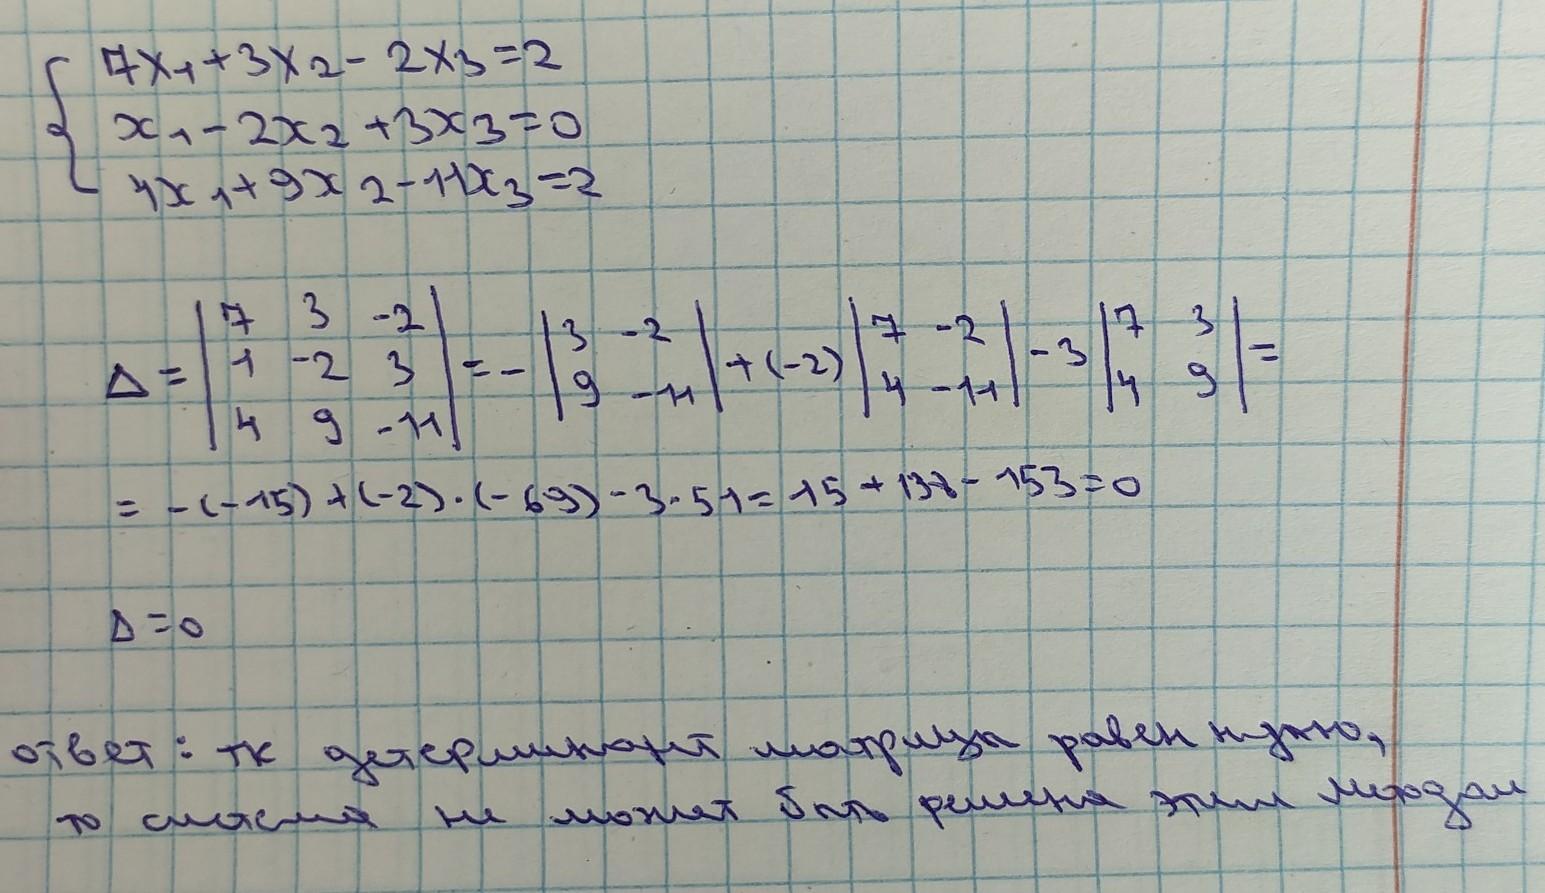 7x₁+3x₂-2x₃=2
x₁-2x₂+3x₃=0
4x₁+9x₂-11x₃=2
Δ=|7 3 -2; 1 -2 3; 4 9 -11|=-|3 -2; 9 -11|+(-2)|7 -2; 4 -11|-3|7 3; 4 9|=
=-(-15)+(-2)·(-69)-3·51=15+138-153=0
Δ=0
ответ: тк детерминант матрицы равен нулю,
то система не может быть решена этим методом